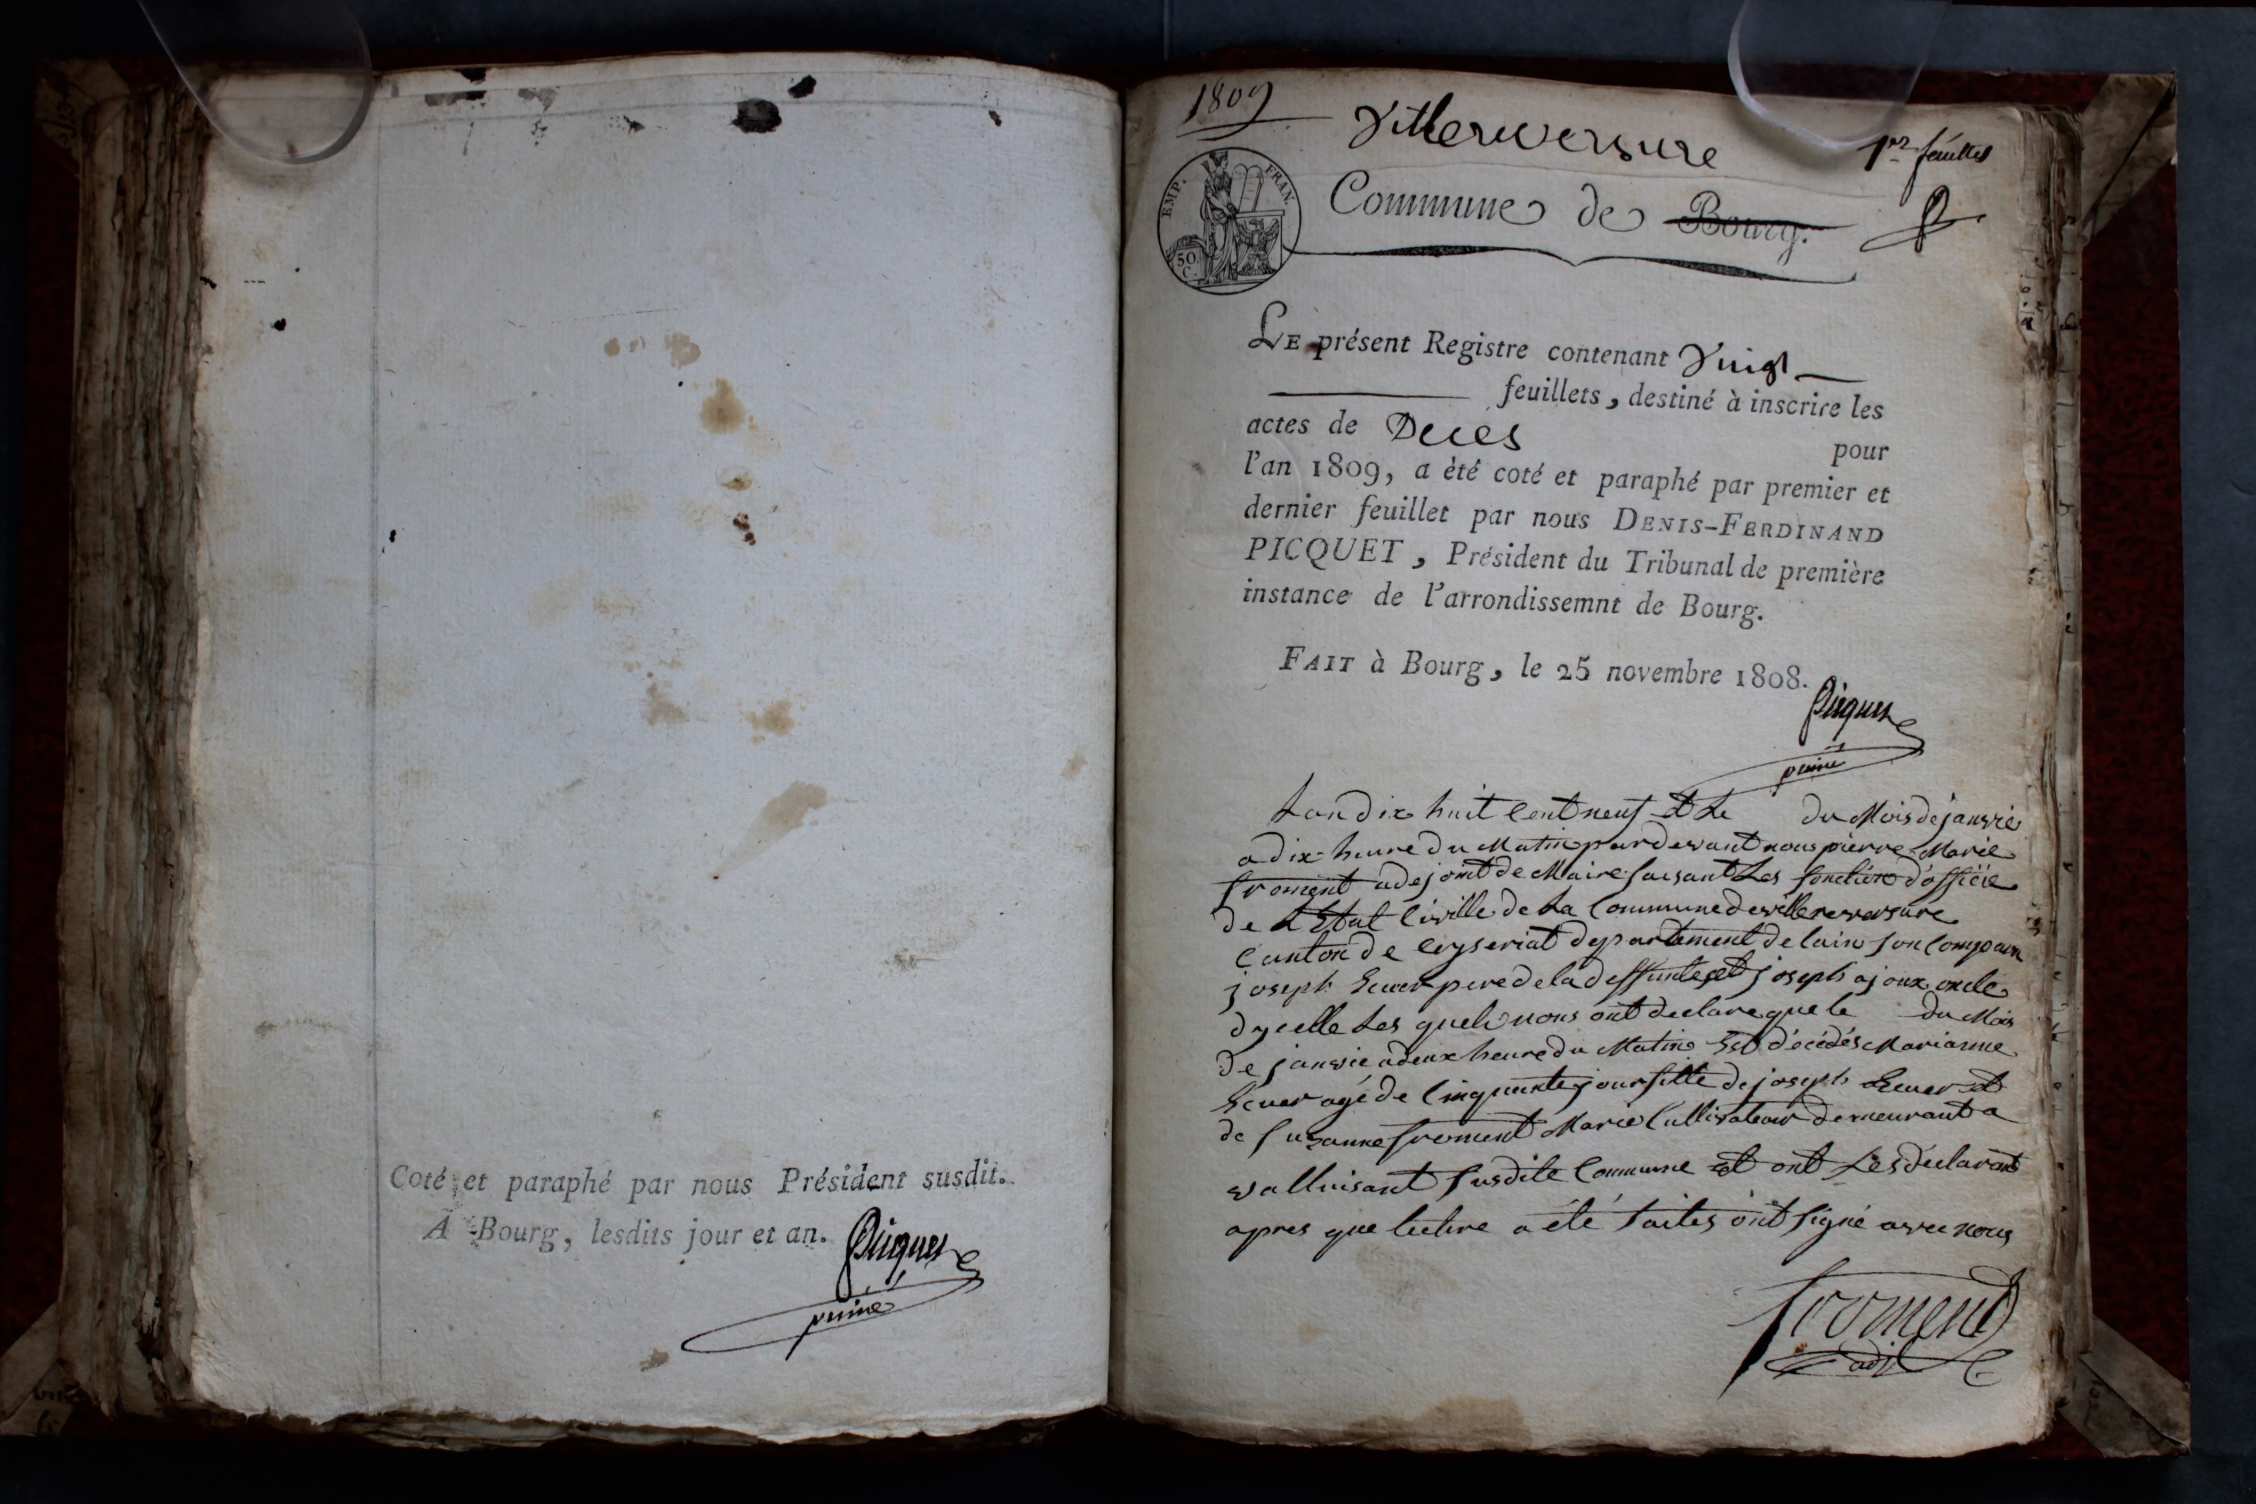 Coté et paraphé par nous Président susdit.
A Bourg, lesdits jour et an.
Picquet
puiné
1809
Villereversure
1er feuillet
EMP. FRAN.
50 C.
Commune de Bourg.
LE présent Registre contenant Vingt
feuillets, destiné à inscrire les
actes de Decès pour
l'an 1809, a èté coté et paraphé par premier et
dernier feuillet par nous DENIS-FERDINAND
PICQUET, Président du Tribunal de première
instance de l'arrondissemnt de Bourg.
FAIT à Bourg, le 25 novembre 1808.
Picquet
puiné
Lan dix huit Cent neuf et Le du Mois de janvié
a dix heure du Matin par devant nous pierre Marie
froment adejoint de Maire faisant Les fonction d'officie
de L'Etat Civille de La Commune de villereversure
Canton de Ceyseriat departement de lain son Comparu
joseph pere de la deffunte et joseph ajoux oncle
dycelle Les quels nous ont declare que le du Mois
de janvie a deux heure du Matin Est décédés Marianne
agé de Cinquante jour fille de joseph et
de Suzanne froment Marié Cultivateur demeurant a
valluisant susdite Commune et ont Les déclarant
apres que lecture a été faites ont signé avec nous
froment
adj